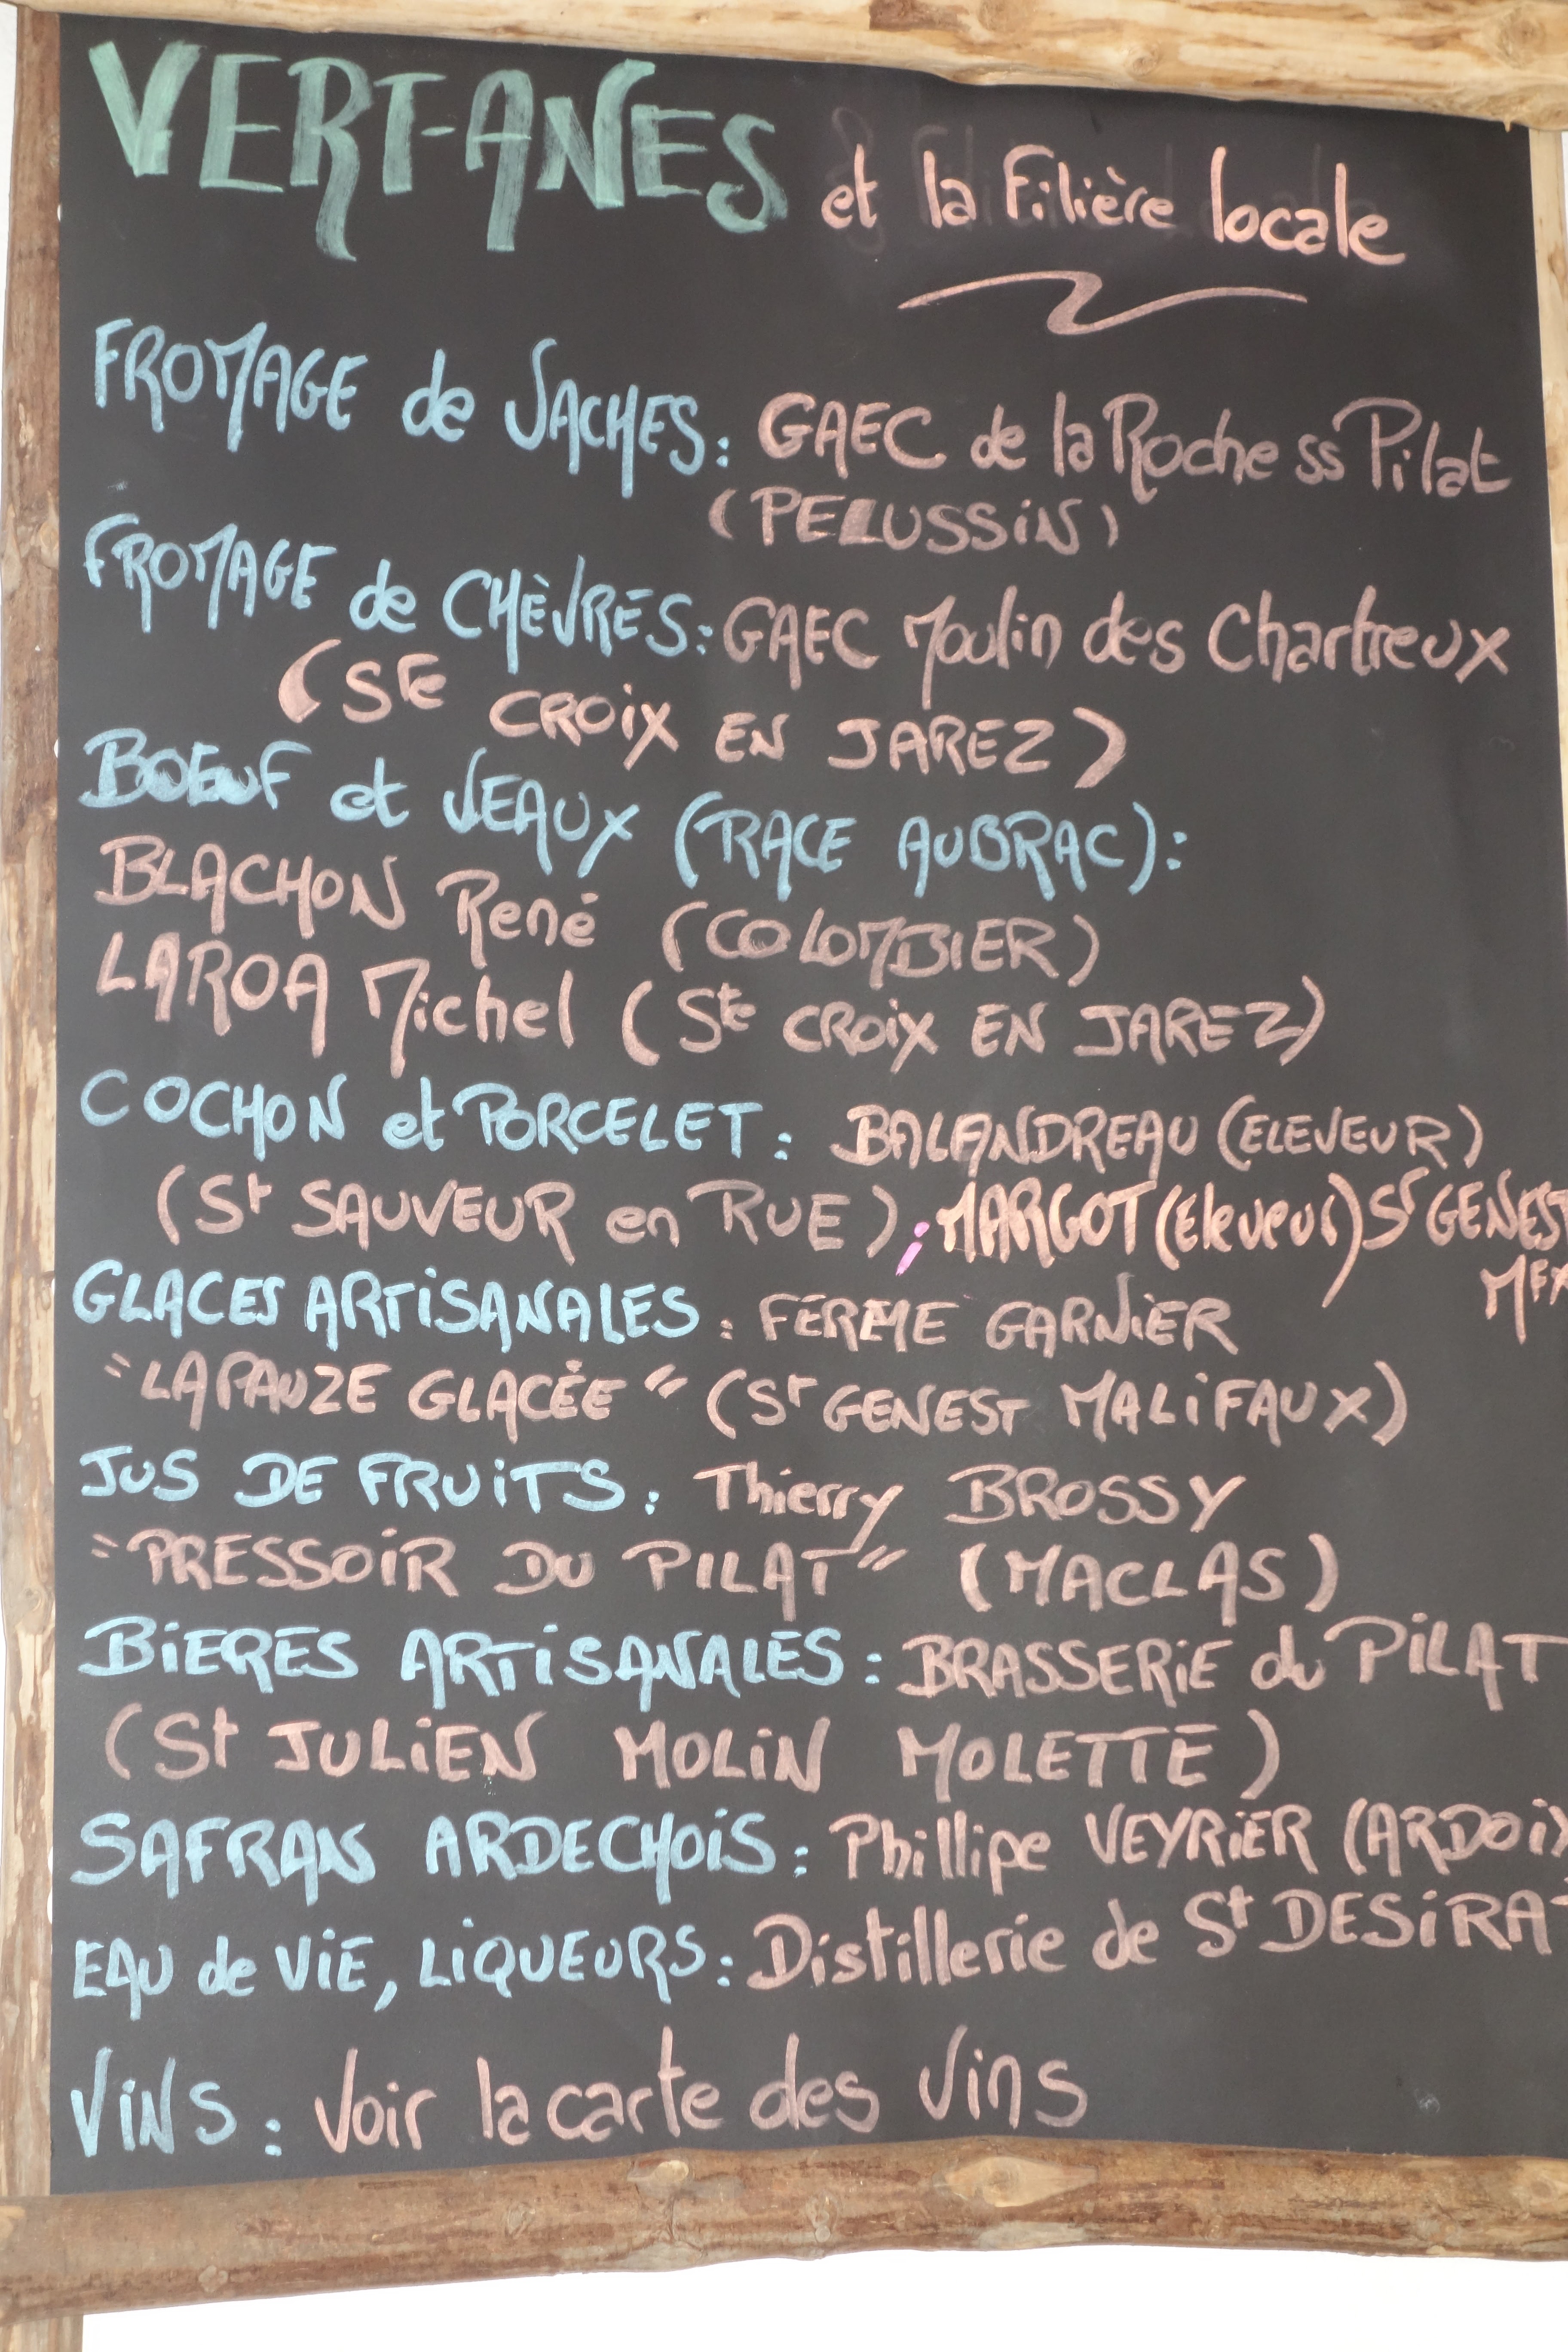 VERT-ANES et la Filière locale
FROMAGE de VACHES: GAEC de la Roche ss Pilat
(PELUSSiN)
FROMAGE de CHÈVRES: GAEC Moulin des Chartreux
(STE CROiX EN JAREZ)
BOEuF et VEAUX (RACE AUBRAC):
BLACHON René (COLOMBIER)
LAROA Michel (Ste CROiX EN JAREZ)
COCHON et PORCELET: BALANDREAU (ELEVEUR)
(St SAUVEUR en RUE); MARGOT (Eleveur) St GENEST
GLACES ARTiSANALES: FERME GARNiER
"LA PAUZE GLACÉE" (St GENEST MALiFAUX)
JUS DE FRUiTS: Thierry BROSSY
"PRESSOiR DU PILAT" (MACLAS)
BiERES ARTiSANALES: BRASSERiE du PiLAT
(St JULiEN MOLiN MOLETTE)
SAFRAN ARDECHOiS: Phillipe VEYRiER (ARDOiX
EAU de ViE, LiQUEURS: Distillerie de St DESiRAT
ViNS: Voir la carte des Vins